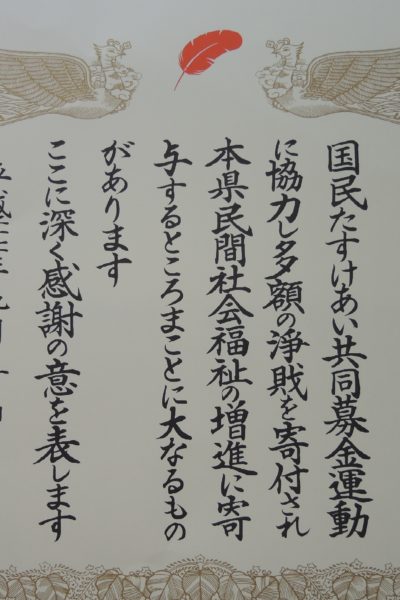 国民たすけあい共同募金運動
に協力し多額の浄財を寄付され
本県民間社会福祉の増進に寄
与するところまことに大なるもの
があります
ここに深く感謝の意を表します